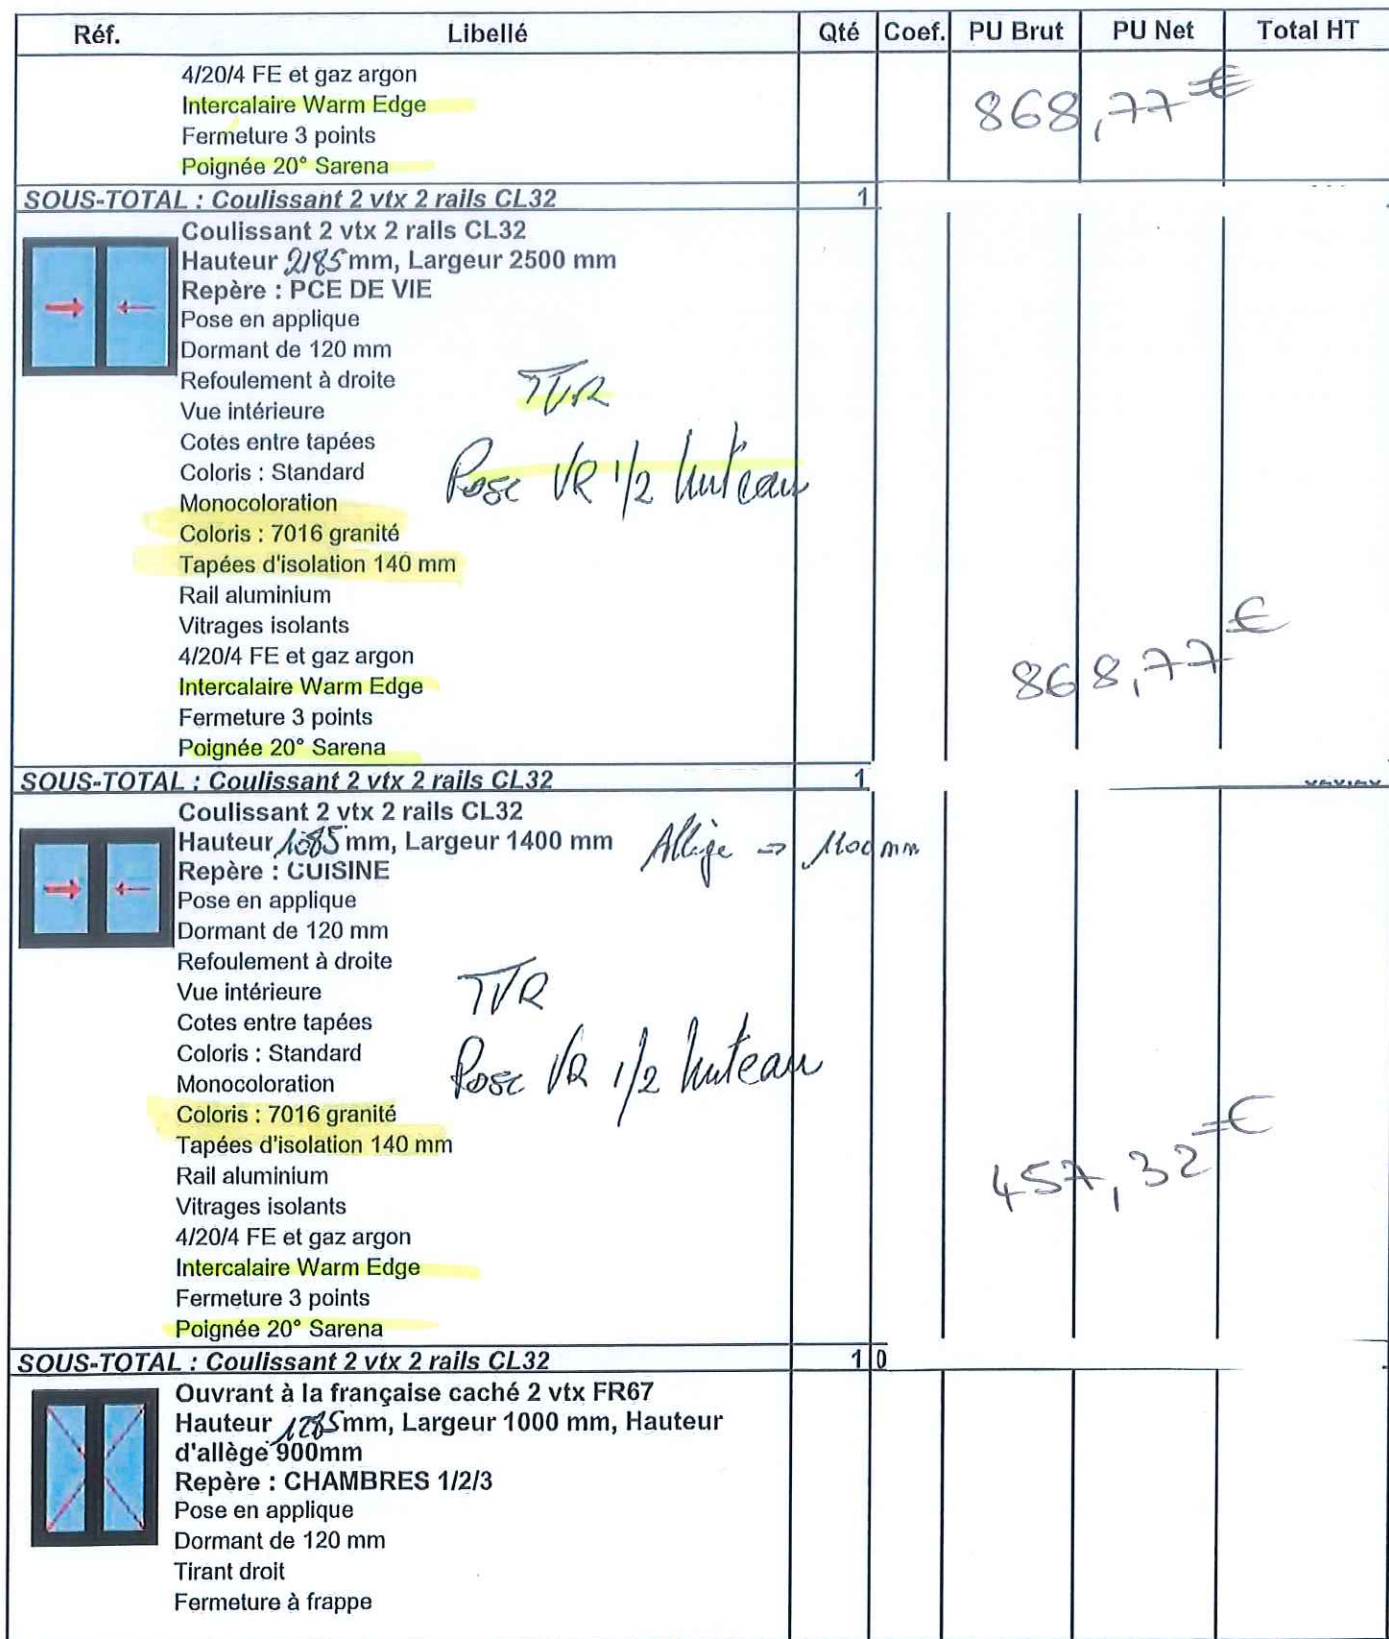 Réf. Libellé Qté Coef. PU Brut PU Net Total HT
4/20/4 FE et gaz argon
Intercalaire Warm Edge
868,77 €
Fermeture 3 points
Poignée 20° Sarena
SOUS-TOTAL : Coulissant 2 vtx 2 rails CL32 1
Coulissant 2 vtx 2 rails CL32
Hauteur 2185 mm, Largeur 2500 mm
Repère : PCE DE VIE
Pose en applique
Dormant de 120 mm
Refoulement à droite
TVR
Vue intérieure
Cotes entre tapées
Coloris : Standard
Pose VR 1/2 linteau
Monocoloration
Coloris : 7016 granité
Tapées d'isolation 140 mm
Rail aluminium
Vitrages isolants
4/20/4 FE et gaz argon
868,77 €
Intercalaire Warm Edge
Fermeture 3 points
Poignée 20° Sarena
SOUS-TOTAL : Coulissant 2 vtx 2 rails CL32 1
Coulissant 2 vtx 2 rails CL32
Hauteur 1085 mm, Largeur 1400 mm Allège => 1100 mm
Repère : CUISINE
Pose en applique
Dormant de 120 mm
Refoulement à droite
Vue intérieure
TVR
Cotes entre tapées
Coloris : Standard
Pose VR 1/2 linteau
Monocoloration
Coloris : 7016 granité
Tapées d'isolation 140 mm
Rail aluminium
457,32 €
Vitrages isolants
4/20/4 FE et gaz argon
Intercalaire Warm Edge
Fermeture 3 points
Poignée 20° Sarena
SOUS-TOTAL : Coulissant 2 vtx 2 rails CL32 1 0
Ouvrant à la française caché 2 vtx FR67
Hauteur 1285 mm, Largeur 1000 mm, Hauteur
d'allège 900mm
Repère : CHAMBRES 1/2/3
Pose en applique
Dormant de 120 mm
Tirant droit
Fermeture à frappe